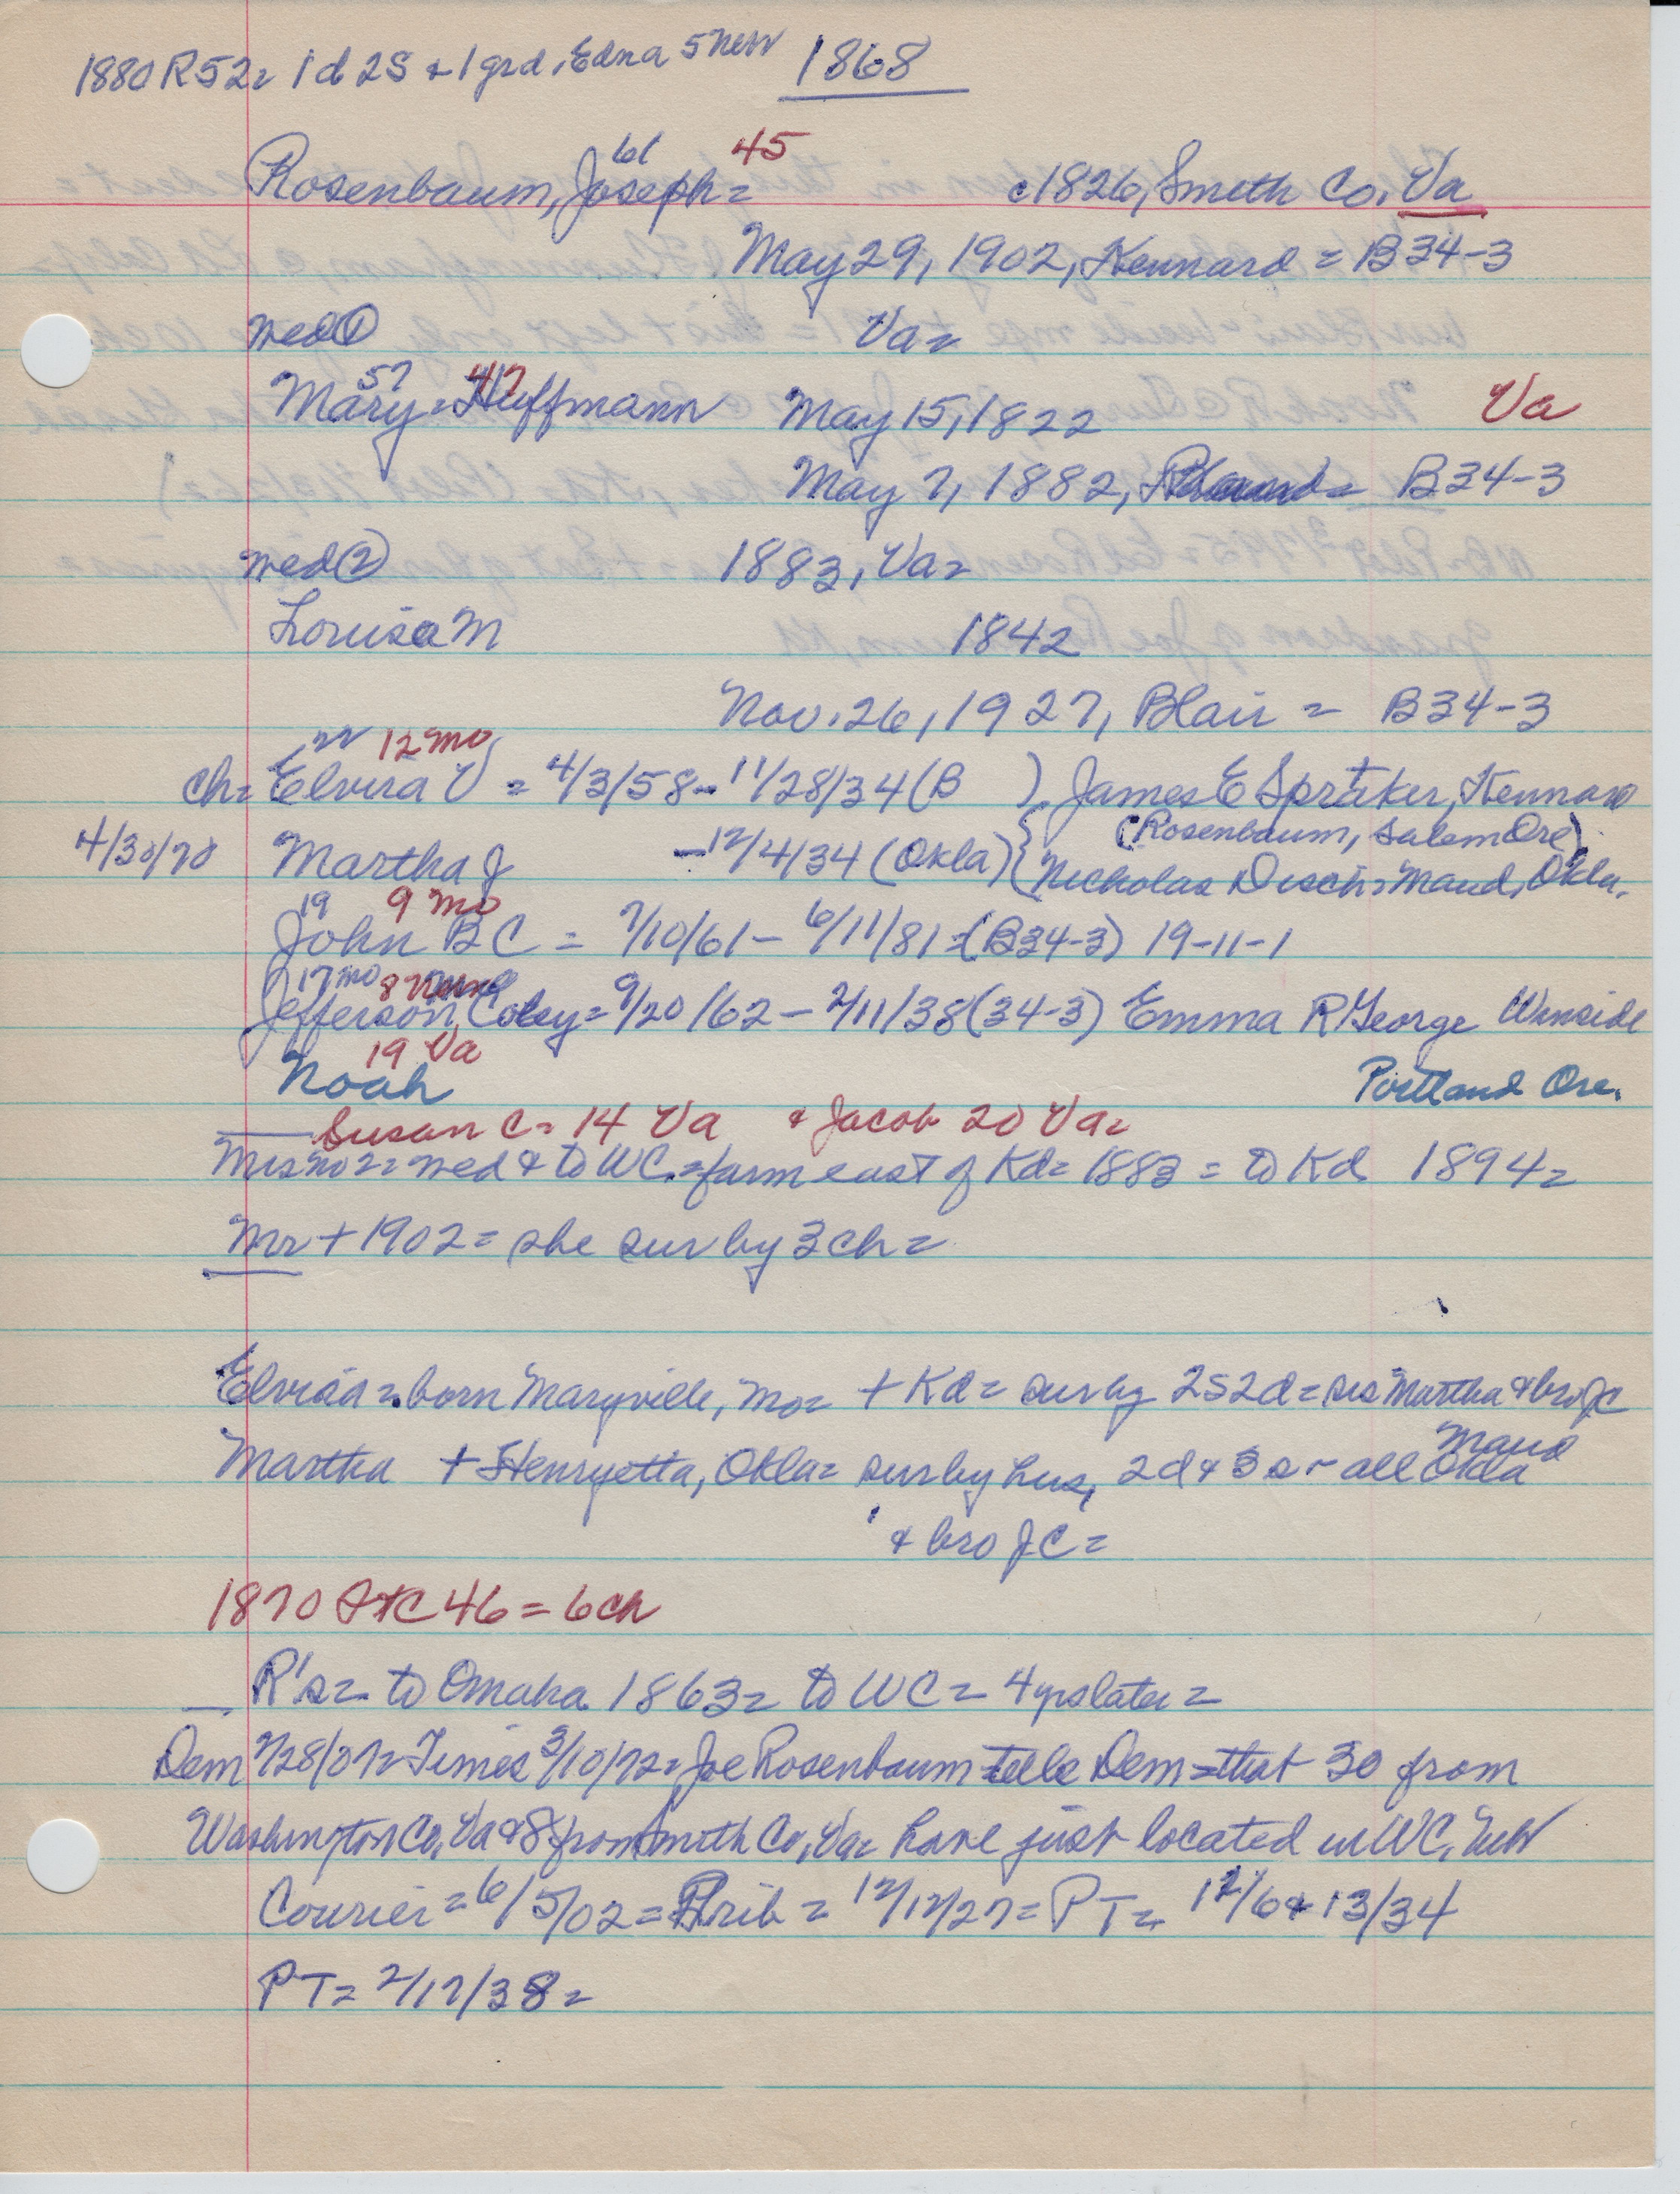 1880 R52= 1d 2S & 1 grd, Edna 5 Neb 1868
61 45
Rosenbaum, Joseph= c1826, Smith Co, Va
May 29, 1902, Kennard = B34-3
med① Va=
57 47
Mary= Huffmann May 15, 1822 Va
May 7, 1882, = B34-3
med② 1883, Va=
Louisa M 1842
Nov. 26, 1927, Blair = B34-3
22 12 mo
ch= Elvira V = 4/3/58-11/28/34 (B ) James E Spraker, Kennard
(Rosenbaum, Salem Ore)
4/30/70 Martha J -12/4/34 (Okla) { Nicholas Disch= Maud, Okla.
19 9 mo
John B C = 7/10/61- 6/11/81= (B34-3) 19-11-1
17 mo 8
Jefferson Coley= 9/20/62- 2/11/38 (34-3) Emma R George Winside
19 Va
Noah Portland Ore.
Susan C= 14 Va & Jacob 20 Va=
Mrs no 2= med & to WC= farm east of Kd= 1883 = to Kd 1894=
Mr + 1902= she sur by 3 ch=
Elvira= born Maryville, Mo= + Kd= sur by 2S 2d= sis Martha & bro JC
Maud
Martha + Henryetta, Okla= sur by hus, 2d & 3 s - all Okla
& bro JC=
1870 46 = 6 ch
R's= to Omaha 1863= to WC= 4 yrs later=
Dem Times 3/10/72= Joe Rosenbaum tells Dem= that 30 from
Washington Co, Va & 8 from Smith Co, Va= have just located in WC, Neb
Courier= 6/5/02= Trib = 12/12/27= PT= 12/6 & 13/34
PT= 2/17/38=